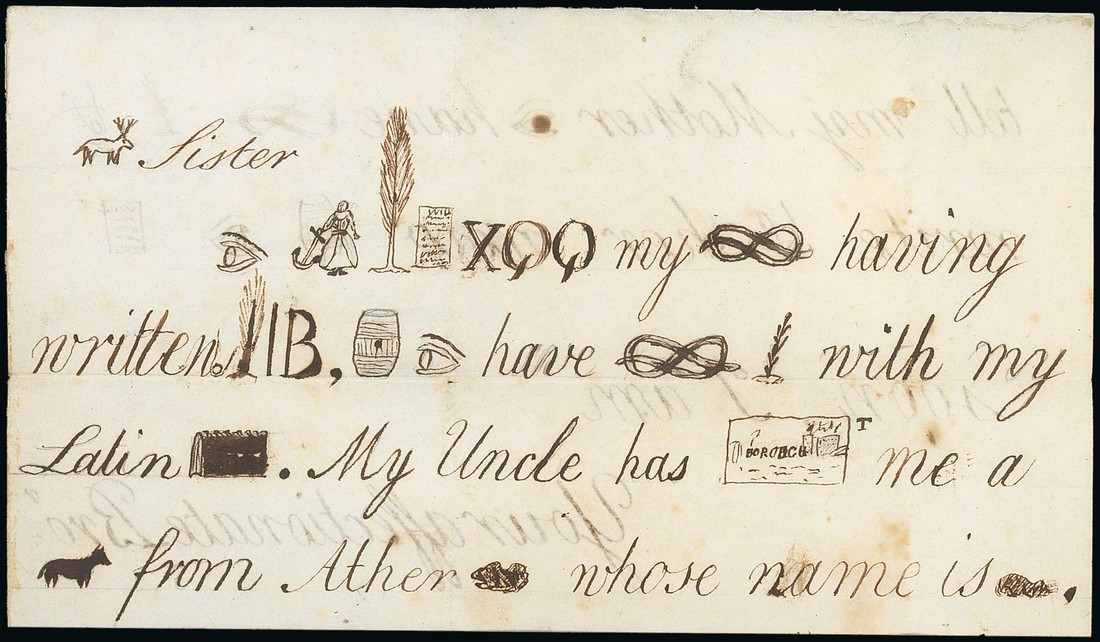 Sister
XQQ my having
written. IIB, have with my
Latin . My Uncle has BOROUGH T me a
from Ather whose name is .